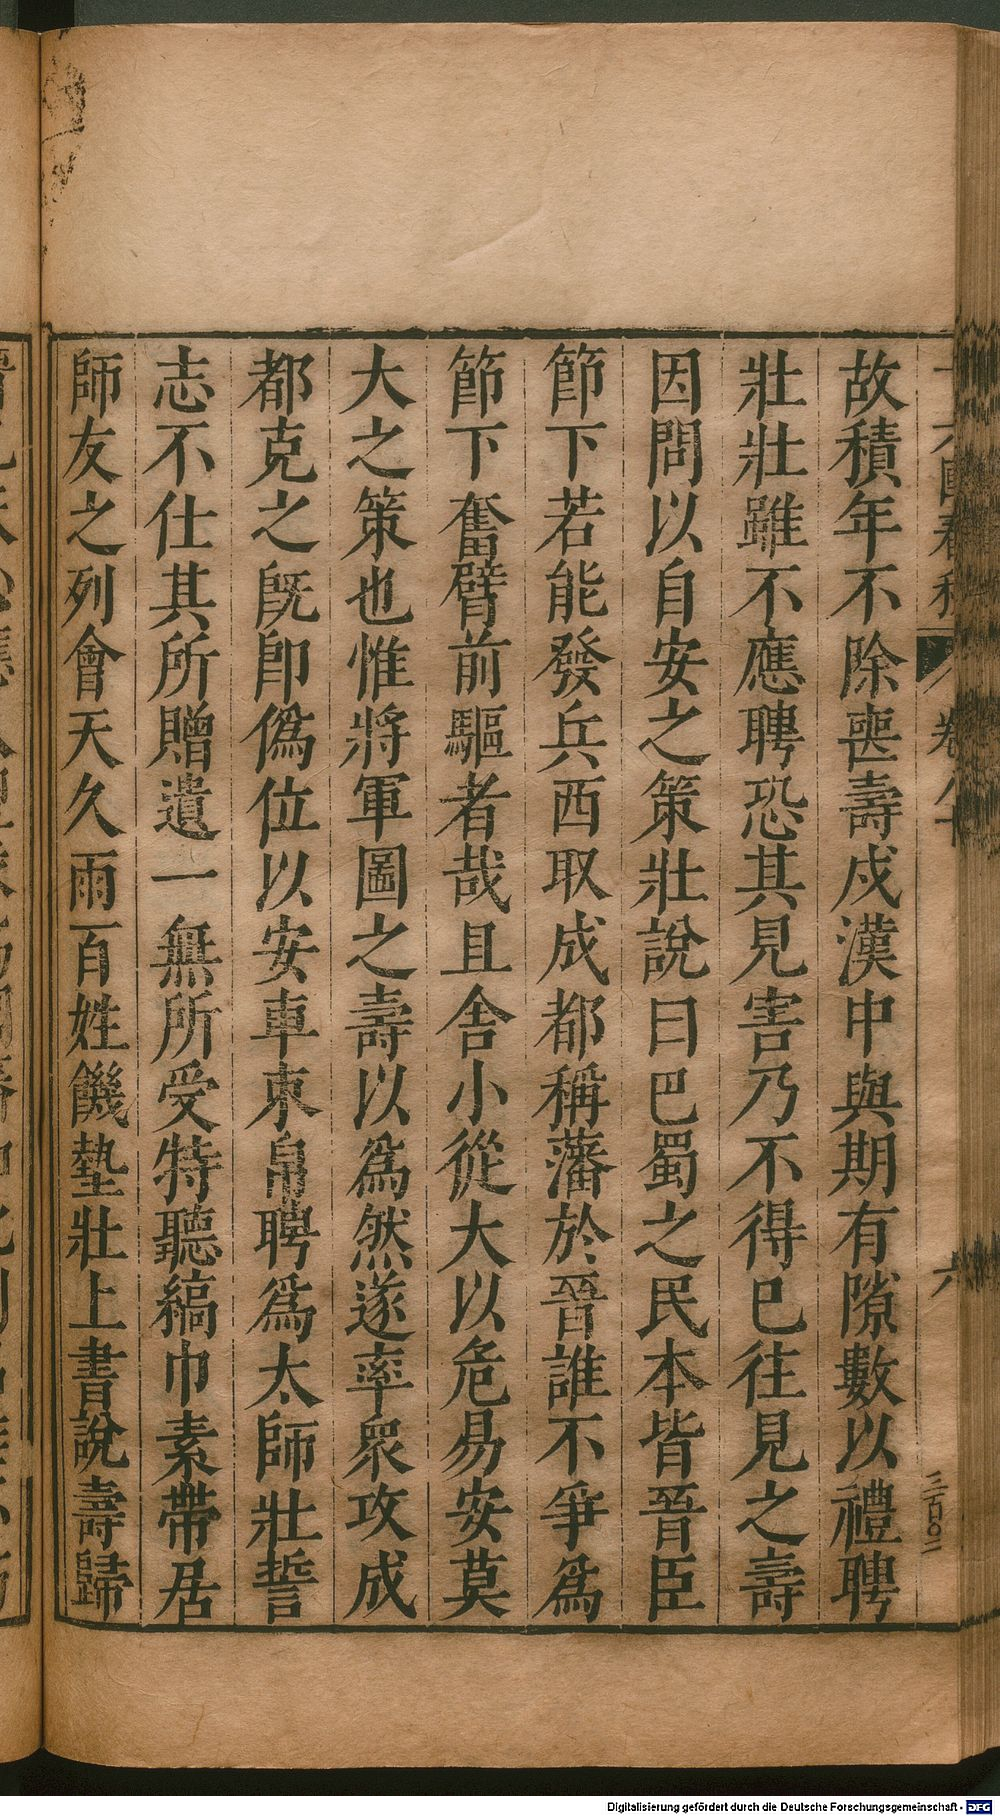 故積年不除喪壽戍漢中與期有隙數以禮聘
壯壯雖不應聘恐其見害乃不得已往見之壽
因問以自安之策壯說曰巴蜀之民本皆晉臣
節下若能發兵西取成都稱藩於晉誰不爭爲
節下奮臂前驅者哉且舍小從大以危易安莫
大之策也惟將軍圖之壽以爲然遂率衆攻成
都克之旣卽僞位以安車束帛聘爲太師壯誓
志不仕其所贈遺一無所受特聽縞巾素帶居
師友之列會天久雨百姓饑墊壯上書說壽歸
三百〇二
Digitalisierung gefördert durch die Deutsche Forschungsgemeinschaft - DFG